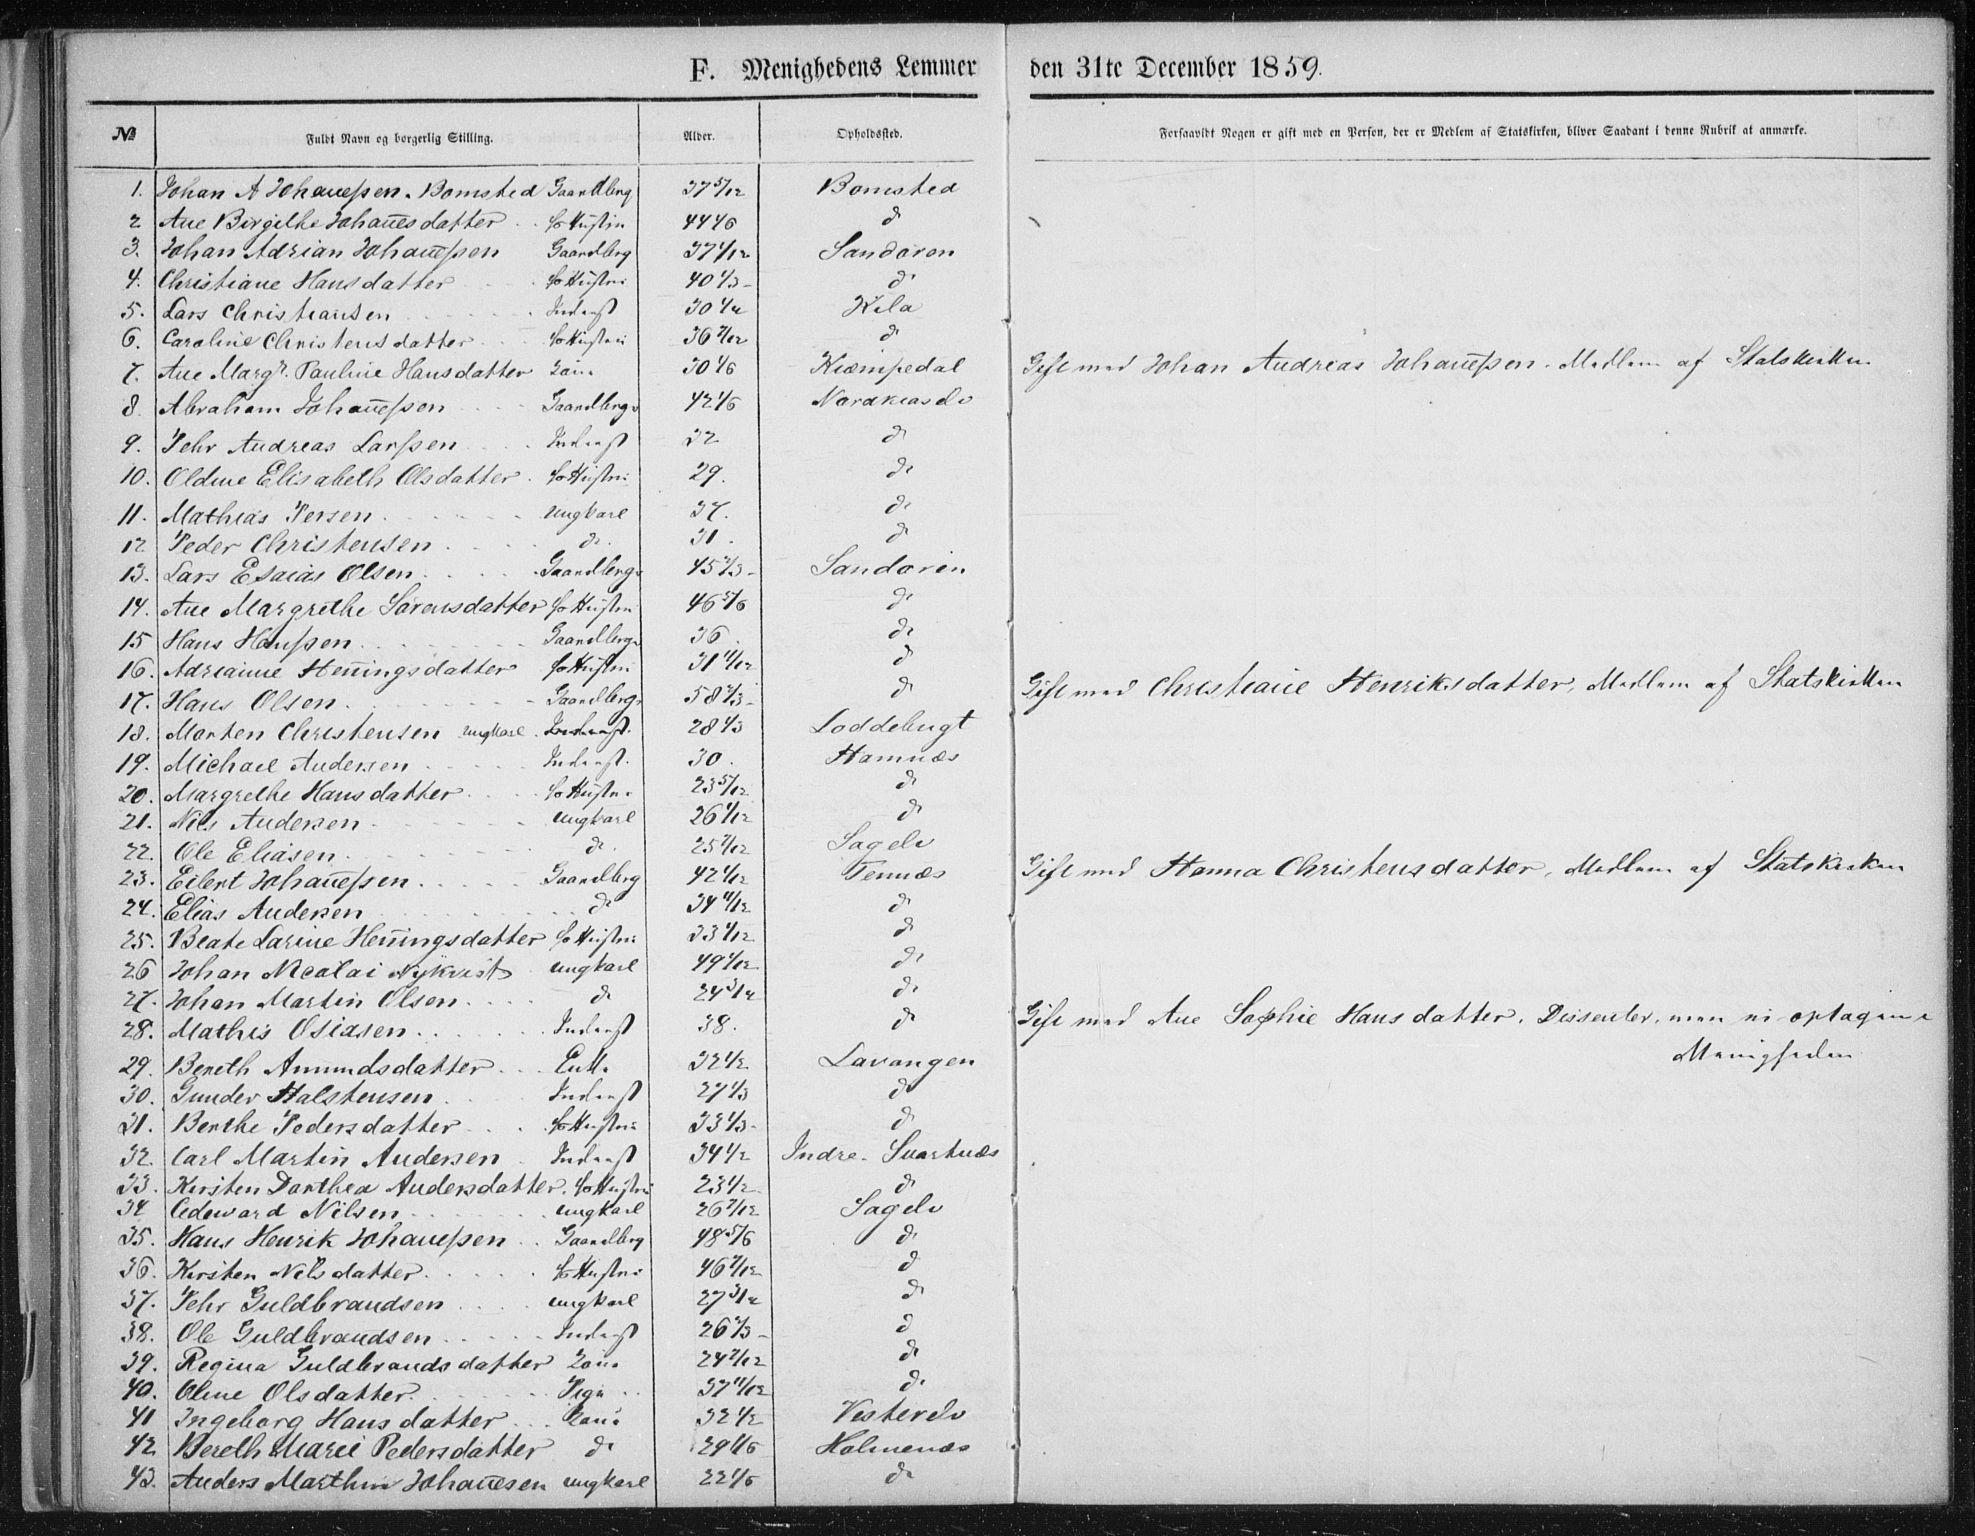 F. Menighedens Lemmer den 31te December 1859.
№ Fuldt Navn og borgerlig Stilling. Alder. Opholdssted. Forsaavidt Nogen er gift med en Person, der er Medlem af Statskirken, bliver Saadant i denne Rubrik at anmærke.
1. Johan A Johanesen. Bomsted Gaardbrg 37 5/12 Bomsted
2 Ane Birgithe Johanesdatter 44 1/6 do
3. Johan Adrian Johanesen Gaardbrg Sandøren
4. Christiane Hansdatter 40 1/3 do
5. Lars Christiansen Inderst 30 1/4 Kila
6. Caroline Christensdatter do
7. Ane Margr. Pauline Hansdatter Kona 30 1/6 Kiæmpedal Gift med Johan Andreas Johanesen. Medlem af Statskirken
8. Abraham Johanesen Gaardbrg 42 1/6
9. Pehr Andreas Larssen Inderst 32 do
10. Oldine Elisabeth Olsdatter 29. do
11. Mathias Persen ungkarl 37. do
12 Peder Christensen do. 31. do
13. Lars Esaias Olsen Gaardbrg Sandøren
14. Ane Margrethe Sørensdatter 46 5/6 do
15 Hans Hanssen Gaardbrg 36. do
16. Adrianne Heningsdatter do
17. Hans Olsen Gaardbrg 58 2/3 do Gift med Christiane Henriksdatter, Medlem af Statskirken
18. Morten Christensen ungkarl 28 1/3 Loddebugt
19. Michael Andersen Inderst. 30. Hamnæs
20. Margrethe Hansdatter 23 5/12 do
21. Nils Andersen ungkarl do
22. Ole Eliasen do. 25 7/12 Sagelv
23. Eilert Johanesen Gaardbrg Tennæs Gift med Hanna Christensdatter, Medlem af Statskirken
24. Elias Andersen do 34 11/12 do
25. Beate Larine Heningsdatter do
26 Johan Nicolai Nykvist ungkarl do
27. Johan Martin Olsen do 24 3/4 do
28. Mathis Osiasen Inderst 38. do Gift med Ane Sophie Hansdatter, Dissenter, men ei optagen i
Menigheden
29. Bereth Amundsdatter 32 1/2 Lavangen
30. Gunder Halstensen Inderst 27 1/3 do
31. Berthe Pedersdatter 33 1/3 do
32. Carl Martin Andersen Inderst 34 1/2 Indre. Svartnæs
33. Kirsten Dorthea Andersdatter. 23 1/2 do
34 Edeward Nilsen ungkarl 26 7/12 Sagelv
35. Hans Henrik Johanesen Gaardbrg 48 5/6 do
36. Kirsten Nilsdatter 46 7/12 do
37. Pehr Guldbrandsen ungkarl 27 3/4 do
38. Ole Guldbrandsen Inderst 26 2/3 do
39. Regina Guldbrandsdatter Kona 24 7/12 do
40. Oline Olsdatter. Pige 37 11/12 do
41 Ingeborg Hansdatter Kona 32 1/2 Vesterelv
42 Bereth Marie Pedersdatter do 29 1/6 Holmenæs
43. Anders Marthin Johanesen ungkarl 22 1/6 do